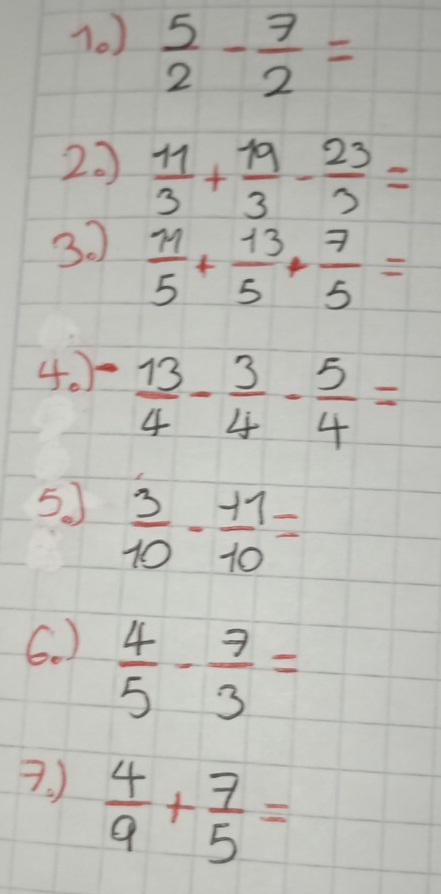 1.) 5/2 - 7/2 =
2.) 11/3 + 19/3 - 23/3 =
3.) 11/5 + 13/5 + 7/5 =
4.) - 13/4 - 3/4 - 5/4 =
5.) 3/10 - 11/10 =
6.) 4/5 - 7/3 =
7.) 4/9 + 7/5 =